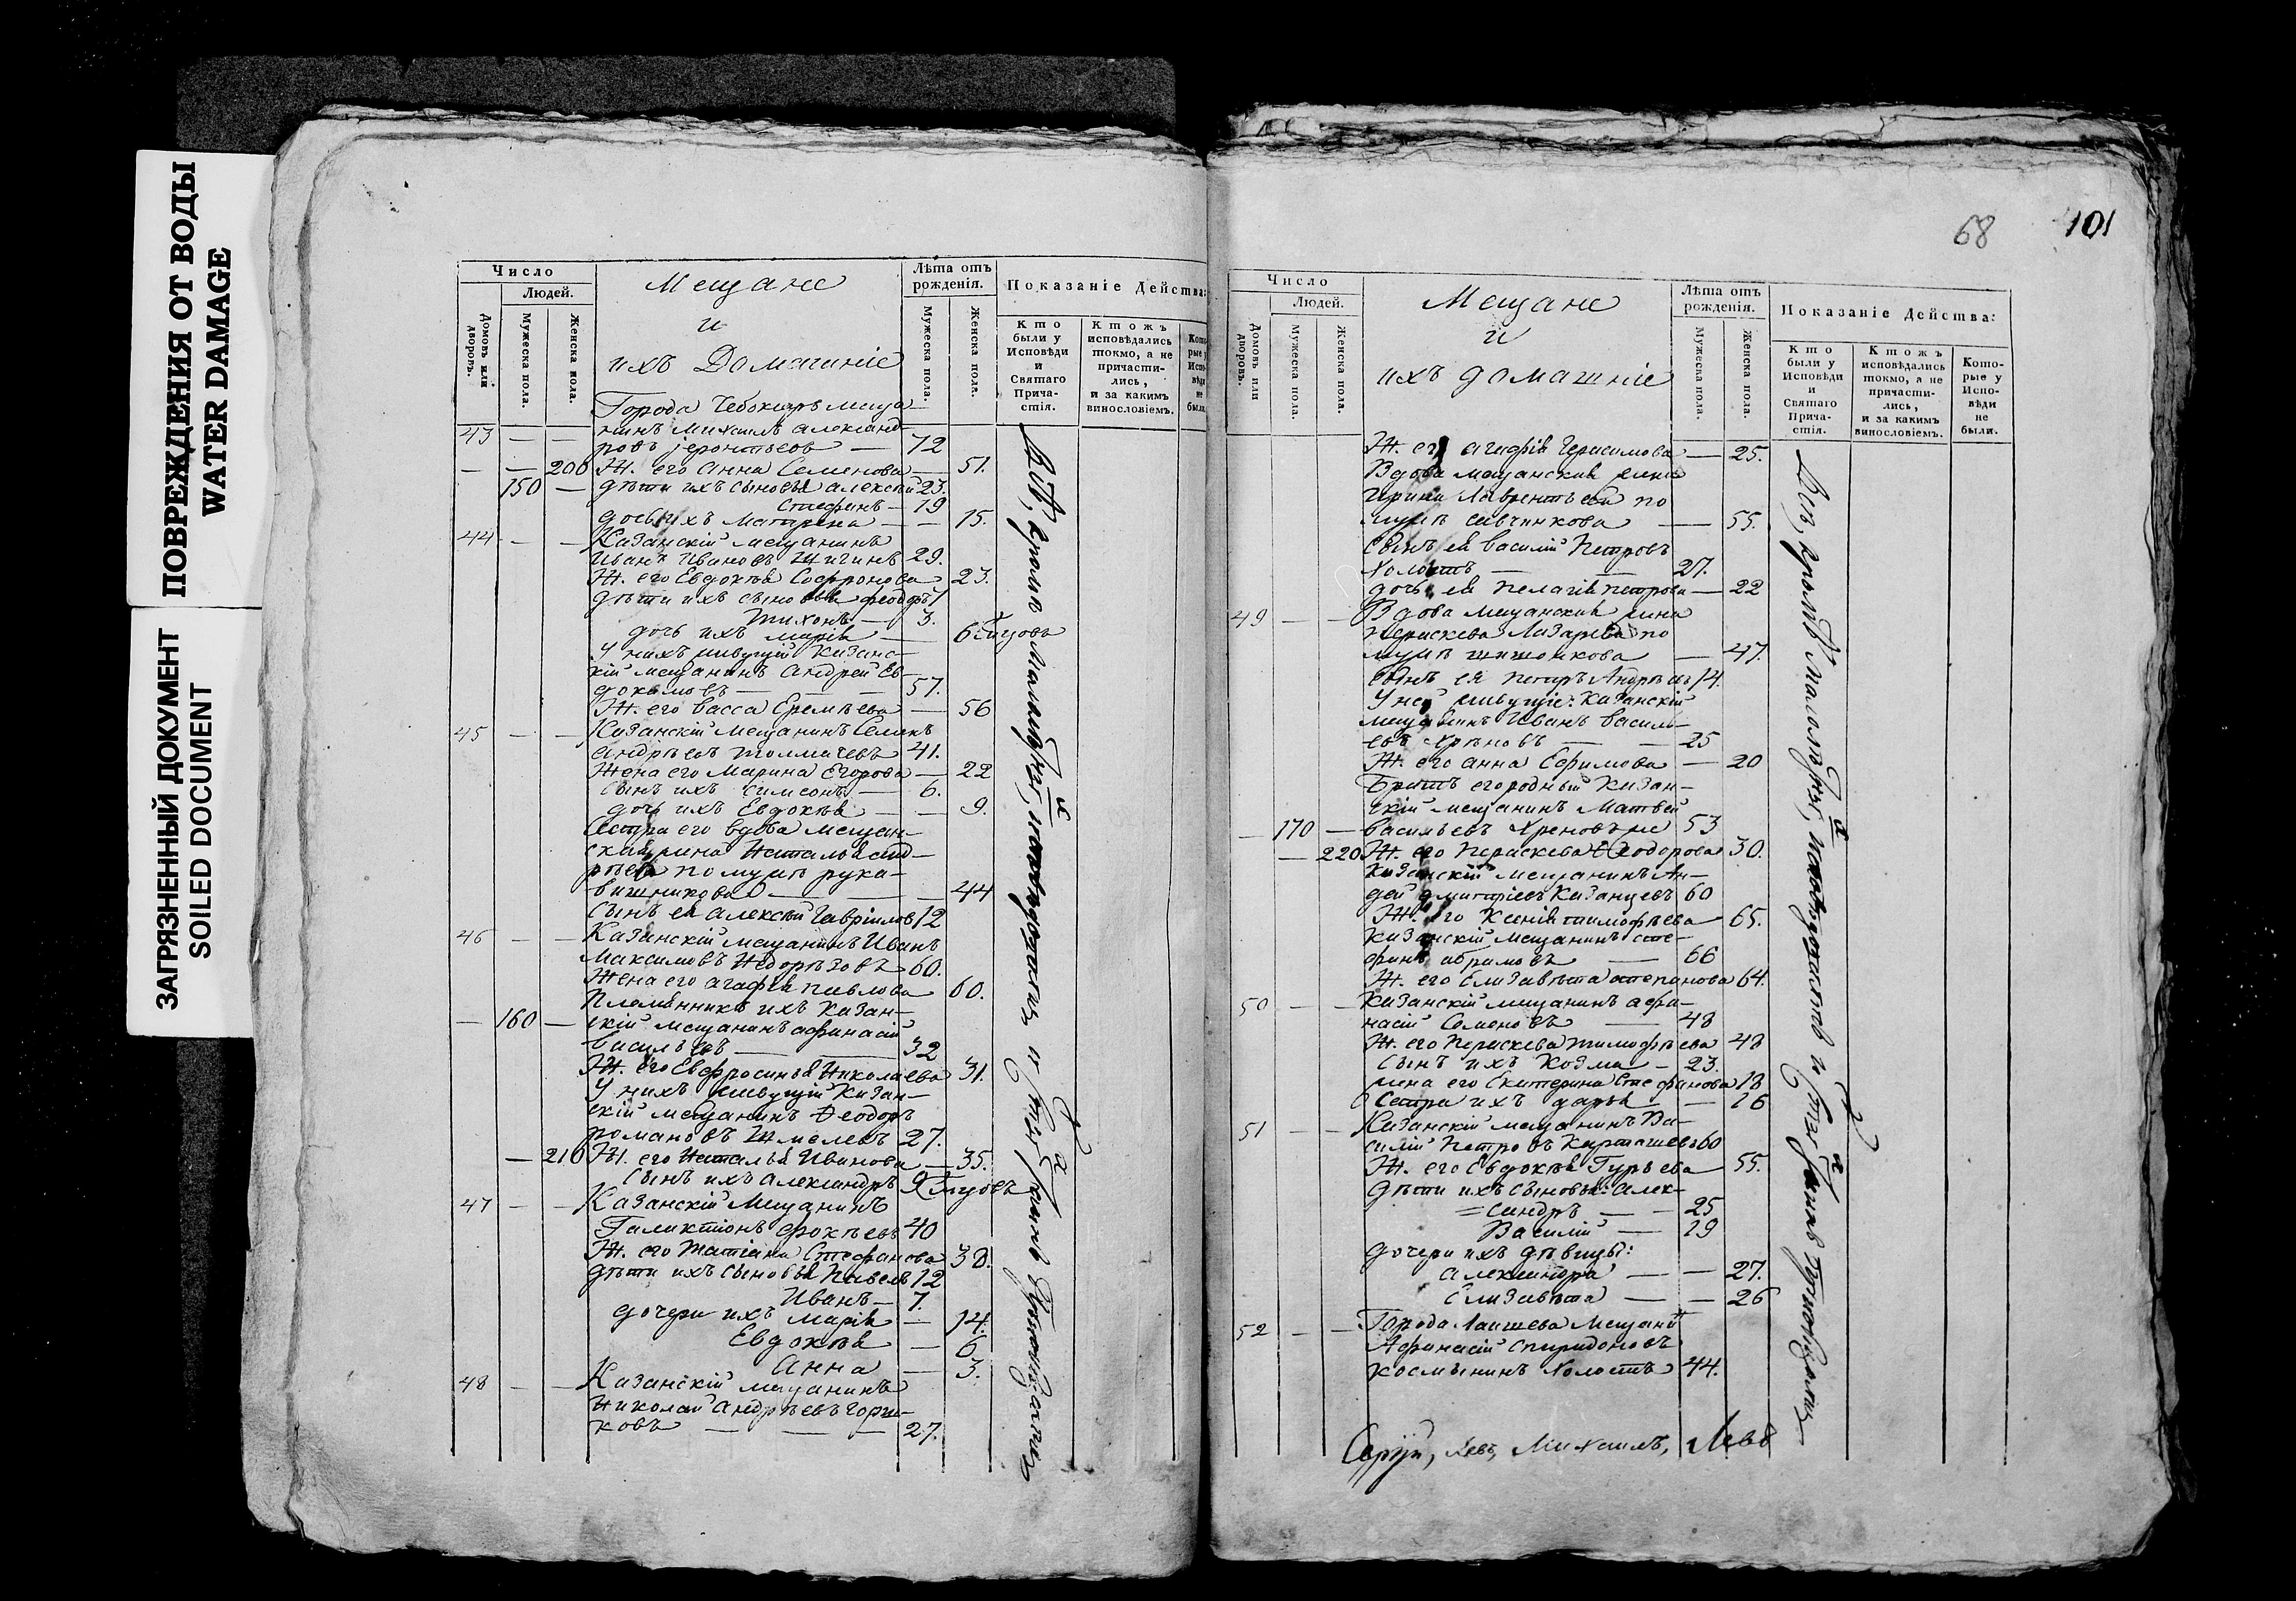 ПОВРЕЖДЕНИЯ ОТ ВОДЫ
WATER DAMAGE
ЗАГРЯЗНЕННЫЙ ДОКУМЕНТ
SOILED DOCUMENT
Число
Людей.
Домовъ или дворовъ.
Мужеска пола.
Женска пола.
Мещане
и
ихъ Домашніе
Лѣта отъ рожденія.
Мужеска пола.
Женска пола.
Показаніе Действа:
Кто были у Исповѣди и Святаго Прича-стія.
Ктожъ исповѣдались токмо, а не причасти-лись, и за какимъ винословіемъ.
Города Чебоксаръ меща-
43 — — нинъ Михаилъ Александ-
ровъ — 72
— — 200 Ж. его Анна Семенова — 51.
150 — дѣти ихъ сыновья Алексѣй 23.
Стефанъ — 19
дочь ихъ Матрена — — 15.
44 — — Казанскій мещанинъ
Иванъ Ивановъ 29.
Ж. его Евдокѣя Софронова 23.
дѣти ихъ сыновья Феодоръ
Тихонъ — 3.
дочь ихъ Марія — 6
У нихъ живущій Казанс-
кій мещанинъ Андрей Ев-
докимовъ — — — 57.
Ж. его Васса Еремѣева — 56
45 — — Казанскій Мещанинъ Семенъ
Андрѣевъ Толмачевъ 41.
Жена его Марина Егорова — 22
Сынъ ихъ Симеонъ — 6.
дочь ихъ Евдокѣя — — 9.
Сестра его вдова мещан-
ская жина Наталья Анд-
рѣева по мужѣ рука-
вишникова — — — 44
Сынъ ея Алексѣй Гавріиловъ 12
46 — — Казанскій мещанинъ Иванъ
Максимовъ Недорѣзовъ 60.
Жена его Агафья Павлова 60.
Племянникъ ихъ Казан-
— 160 — скій мещанинъ Афанасій
Васильевъ — 32
Ж. его Евфросинья Николаева 31.
У нихъ живущій Казан-
скій мещанинъ Феодоръ
Романовъ Шмелевъ 27.
— 210 Ж. его Наталья Иванова — 35.
Сынъ ихъ Александръ
47 — — Казанскій Мещанинъ
Галактіонъ Фокѣевъ 40
Ж. его Татіана Стефанова 38.
дѣти ихъ сыновья Павелъ 12
Иванъ — 7.
дочери ихъ Марія — 14.
Евдокѣя — 6
Анна — 3.
48 — — Казанскій мещанинъ
Николай Андрѣевъ Горш-
ковъ — — — 27.
68
101
Число
Людей.
Домовъ или дворовъ.
Мужеска пола.
Женска пола.
Мещане
и
ихъ домашніе
Лѣта отъ рожденія.
Мужеска пола.
Женска пола.
Показаніе Действа:
Кто были у Исповѣди и Святаго Прича-стія.
Ктожъ исповѣдались токмо, а не причасти-лись, и за какимъ винословіемъ.
Кото-рые у Испо-вѣди не были.
Ж. его Агафія Герасимова — 25.
Вдова мещанская жина
Ирина Лаврентьева по
мужѣ Савчикова — 55.
Сынъ ея Василій Петровъ
Холостъ — — 27.
дочь ея Пелагія Петрова — 22
49 — — Вдова Мещанская жина
Параскева Лазарева по
мужѣ Шишонкова — 47.
Сынъ ея Петръ Андрѣевъ 14.
У ней живущіе: Казанскій
мещанинъ Иванъ Василь-
евъ Хрѣновъ — — 25
Ж. его Анна Ефимова — 20
Братъ его родный Казан-
скій мещанинъ Матвей
— 170 — Васильевъ Хреновъ же 53
— 220 Ж. его Параскева Феодорова 30.
Казанскій мещанинъ Ан-
дрей Дмитріевъ Казанцевъ 60
Ж. его Ксенія Тимофѣева 65.
Казанскій Мещанинъ Сте-
фанъ Абрамовъ — 66
Ж. его Елизавѣта Степанова 64.
50 — — Казанскій мещанинъ Афа-
насій Семеновъ — 48
Ж. его Параскева Тимофѣева 48
Сынъ ихъ Козма — 23.
жина его Екатерина Стефанова 18
Сестра ихъ Дарья — — 16
51 — — Казанскій мещанинъ Ва-
силій Петровъ Карташевъ 60
Ж. его Евдокѣя Гурьева 55.
Дѣти ихъ сыновья: Алек-
=сандръ — — 25
Василій — 19
дочери ихъ дѣвицы:
Александра — — 27.
Елизавѣта — — 26
52 — — Города Лаишева Мещан
Афанасій Спиридоновъ
Космынинъ Холостъ 44.
Левъ, Михаилъ, Левъ